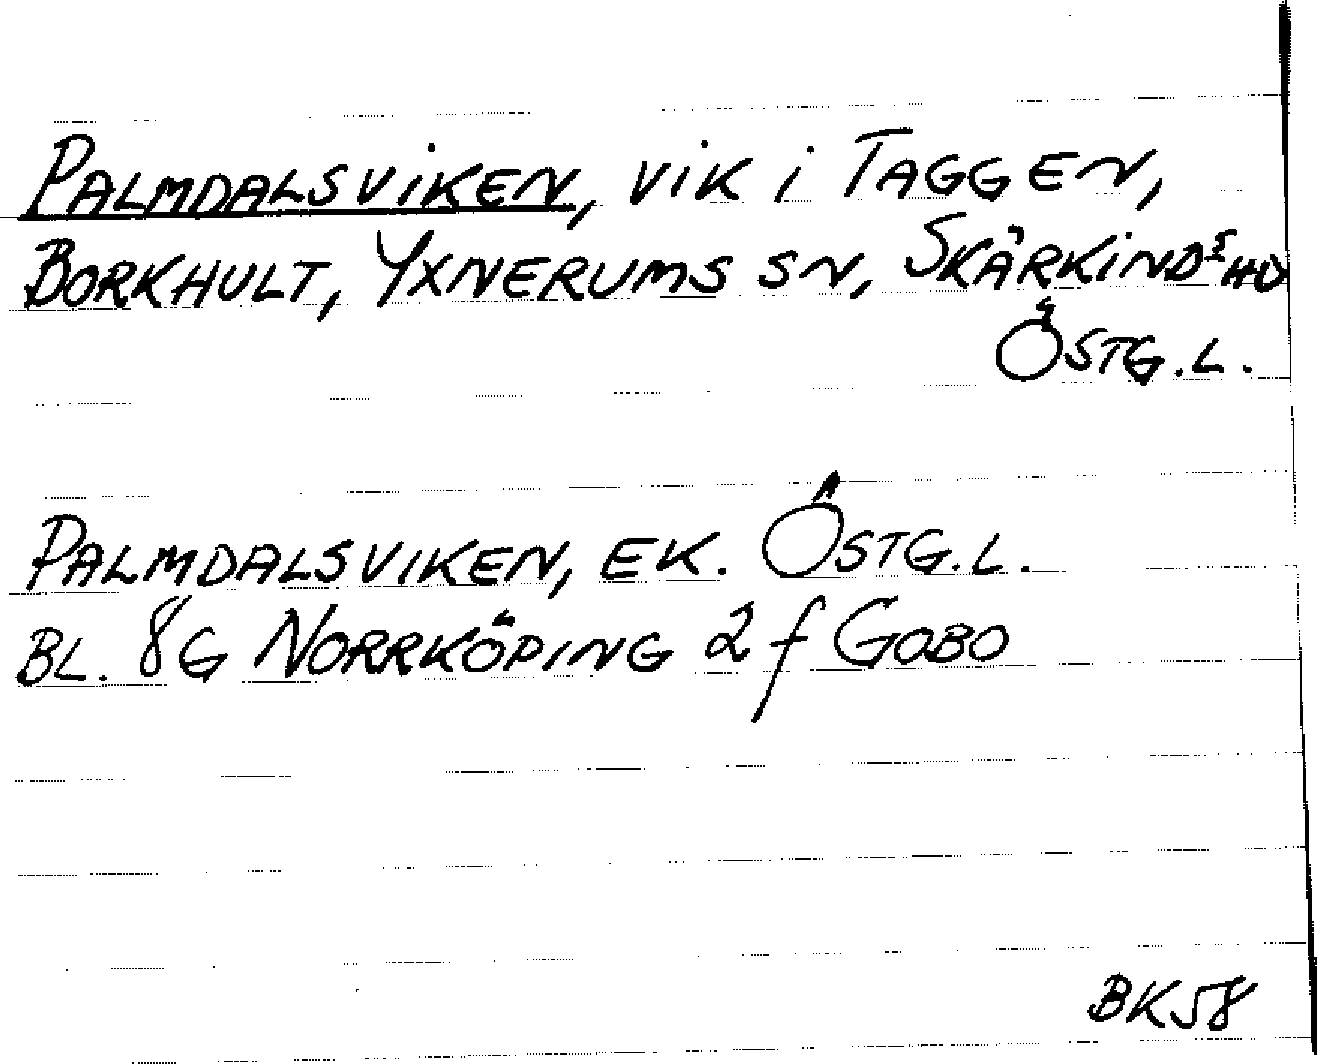 PALMDALSVIKEN, VIK I TAGGEN,
BORKHULT, YXNERUMS SN, SKÄRKINDS HD
ÖSTG.L.
PALMDALSVIKEN, EK. ÖSTG.L.
BL. 8G NORRKÖPING 2 f GOBO
BK58